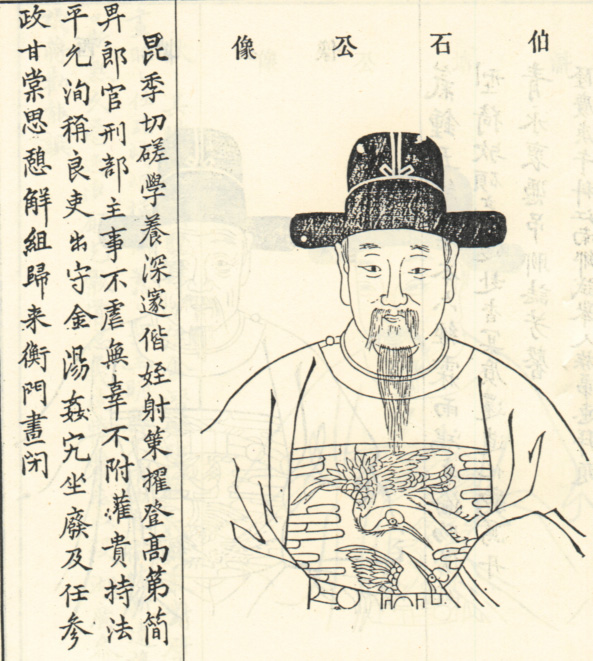 伯石公像
昆季切磋學養深邃偕姪射策擢登高第簡
畀郎官刑部主事不虐無辜不附權貴持法
平允洵稱良吏出守金湯姦宄坐廢及任參
政甘棠思憩解組歸来衡門晝閉